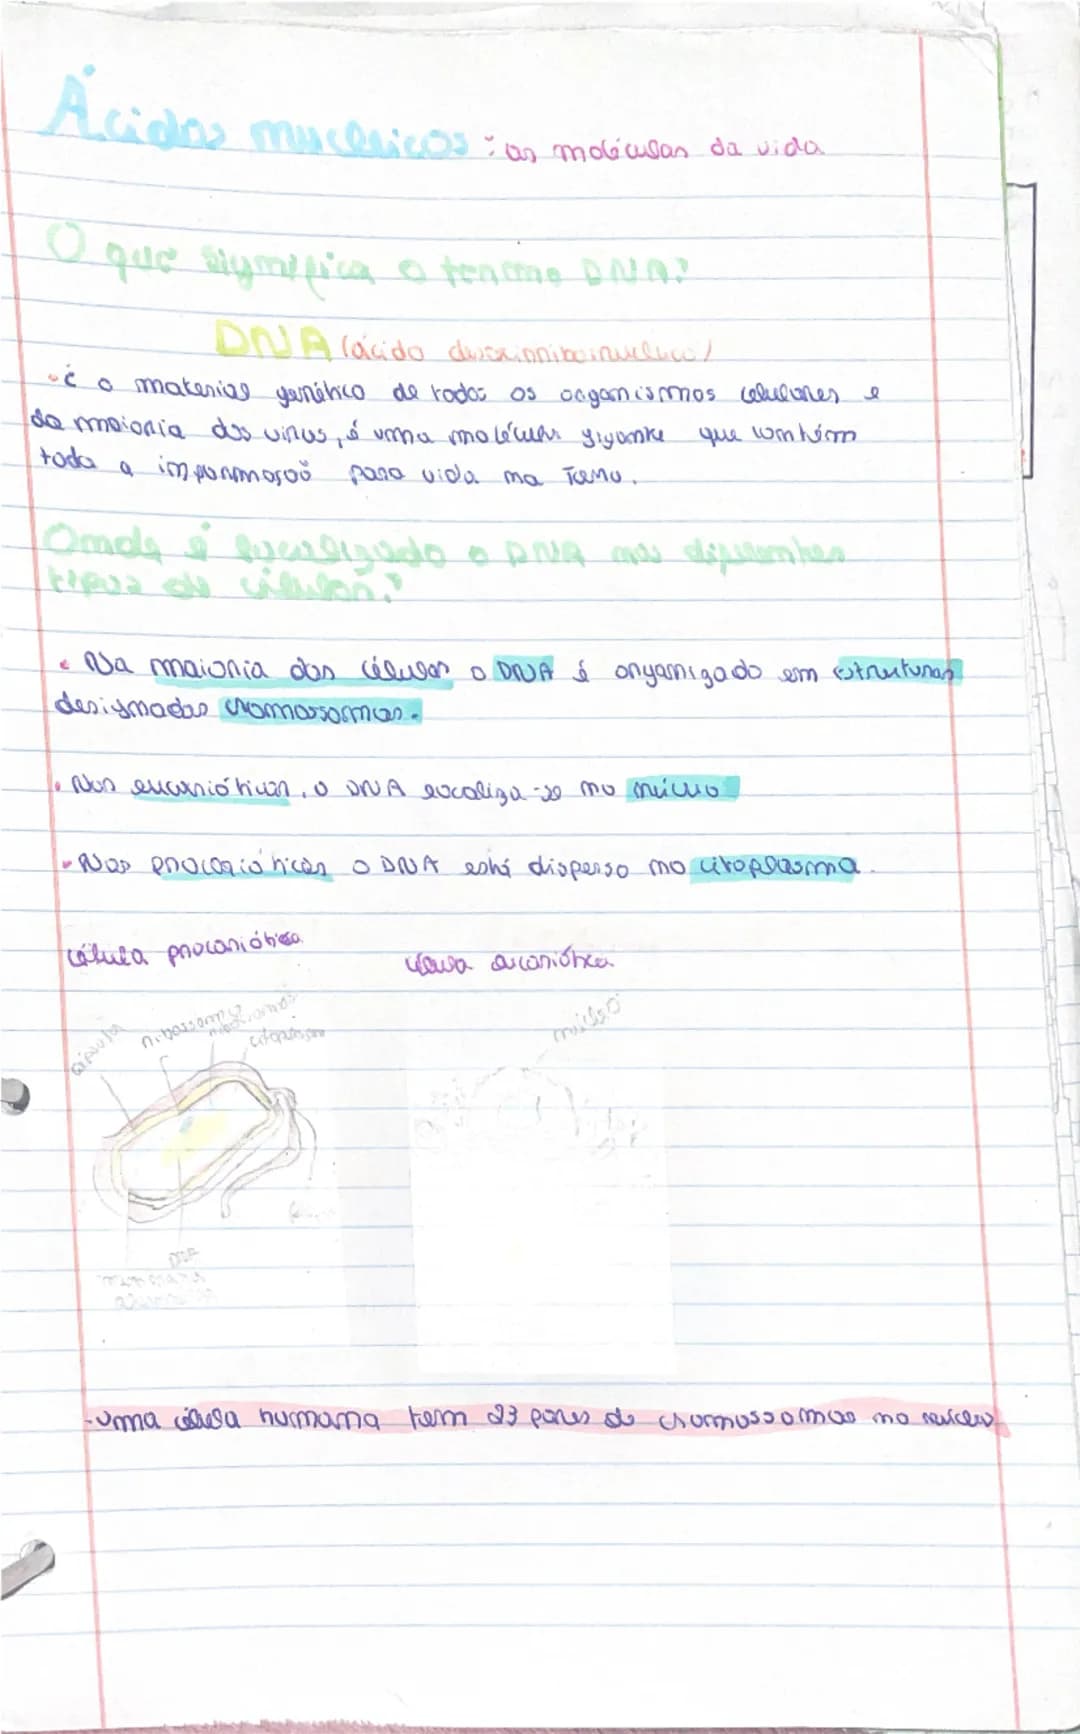 Ácidos nucleicos : as moléculas da vida
O que significa o termo DNA?
DNA (ácido desoxirribonucleico)
• é o material genético de todos os organismos celulares e
da maioria dos vírus, é uma molécula gigante que contém
toda a informação para vida na Terra.
Onde é localizado o DNA nos diferentes
tipos de células?
• Na maioria das células o DNA é organizado em estruturas
designadas cromossomas.
• Nas eucarióticas, o DNA localiza-se no núcleo
• Nas procarióticas o DNA está disperso no citoplasma.
célula procariótica
célula eucariótica
núcleo
cápsula
ribossomas
citoplasma
DNA
membrana
- uma célula humana tem 23 pares de cromossomas no núcleo